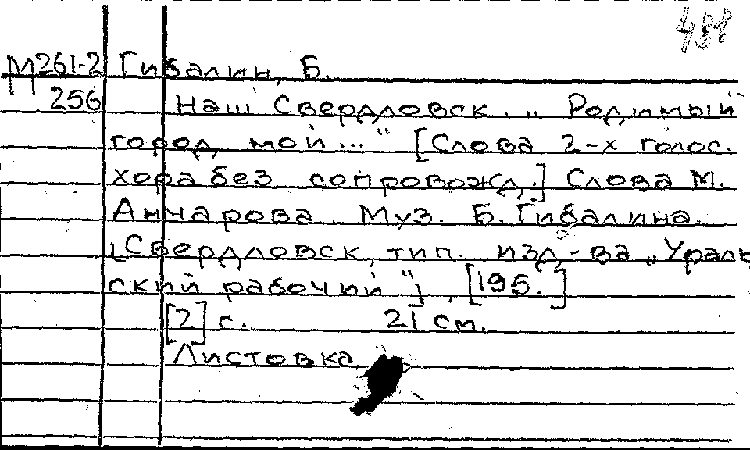 М261-2 Гибалин, Б.
256 Наш Свердловск. „Родимый
город мой..." [Слова 2-х голос.
хора без сопровожд.] Слова М.
Анчарова Муз. Б. Гибалина.
[Свердловск, тип. изд-ва „Ураль
ский рабочий"], [195.]
[2] с. 21 см.
Листовка